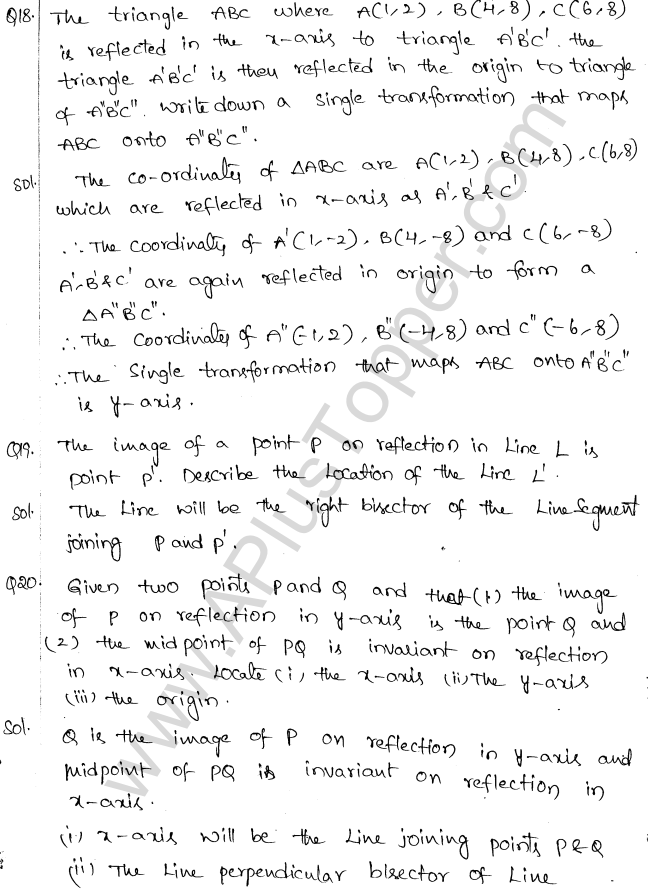 Q18. The triangle ABC where A(1,2), B(4,8), C(6,8)
is reflected in the x-axis to triangle A'B'C'. the
triangle A'B'C' is then reflected in the origin to triangle
of A"B"C". write down a single transformation that maps
ABC onto A"B"C".
Sol. The co-ordinates of ΔABC are A(1,2), B(4,8), C(6,8)
which are reflected in x-axis as A', B' & C'
∴ The coordinates of A'(1,-2), B(4,-8) and C(6,-8)
A', B' & C' are again reflected in origin to form a
ΔA"B"C".
∴ The coordinates of A"(-1,2), B"(-4,8) and C"(-6,8)
∴ The single transformation that maps ABC onto A"B"C"
is y-axis.
Q19. The image of a point P on reflection in Line L is
point p'. Describe the Location of the Line L'.
Sol. The Line will be the right bisector of the Line Segment
joining P and p'.
Q20. Given two points P and Q and that (1) the image
of P on reflection in y-axis is the point Q and
(2) the midpoint of PQ is invariant on reflection
in x-axis. Locate (i) the x-axis (ii) The y-axis
(iii) the origin.
Sol. Q is the image of P on reflection in y-axis and
midpoint of PQ is invariant on reflection in
x-axis.
(i) x-axis will be the Line joining points P & Q
(ii) The Line perpendicular bisector of Line
www.APlusTopper.com